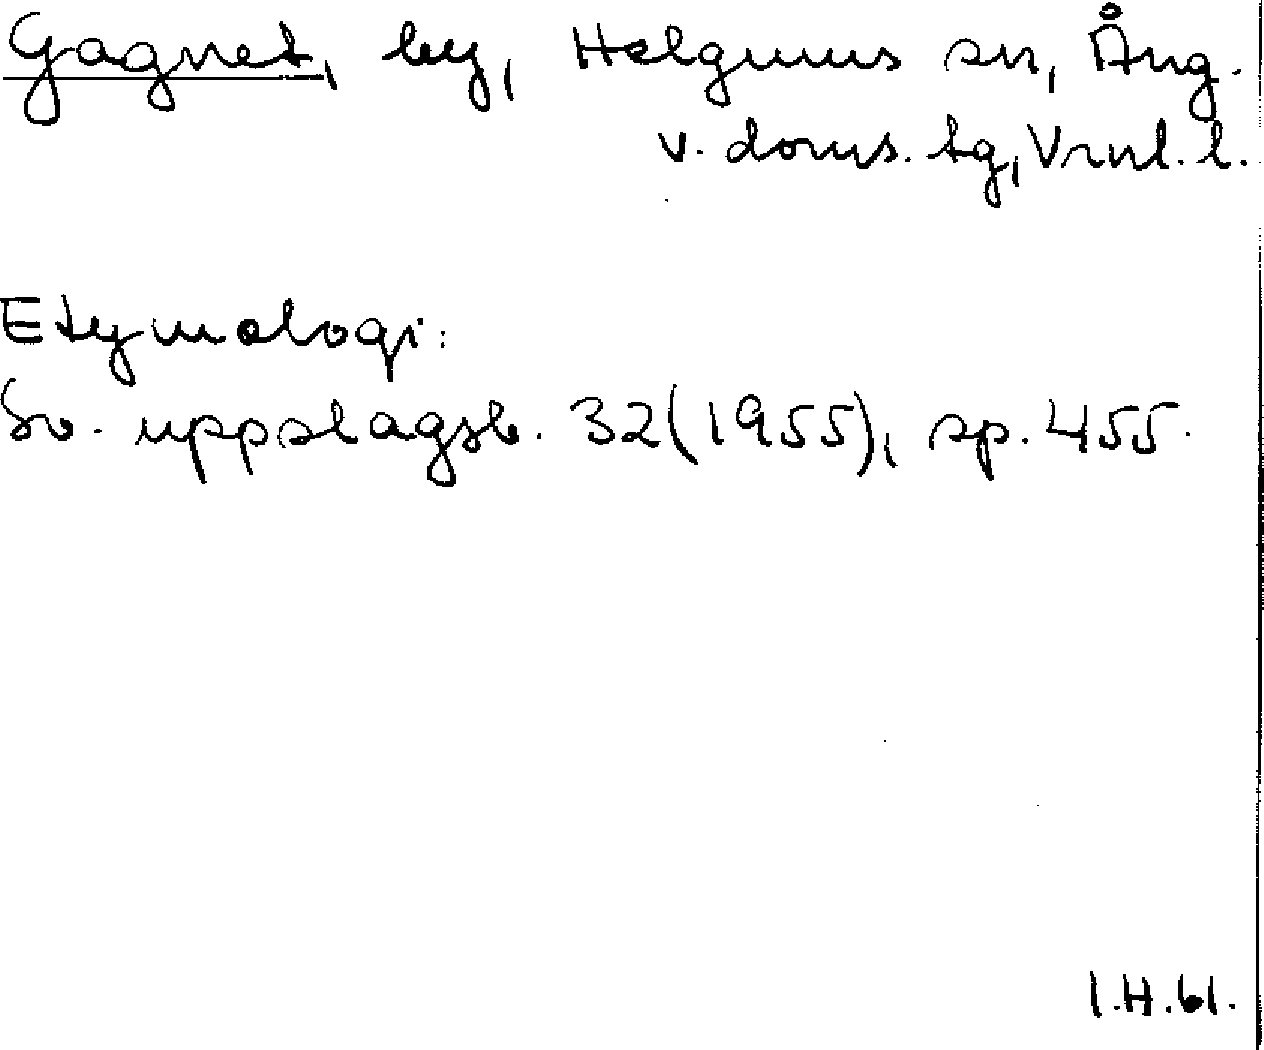 Gagnet, by, Helgums sn, Ång.
v. doms. tg, Vrnl. l.
Etymologi:
Sv. uppslagsb. 32(1955), sp. 455.
I.H.61.